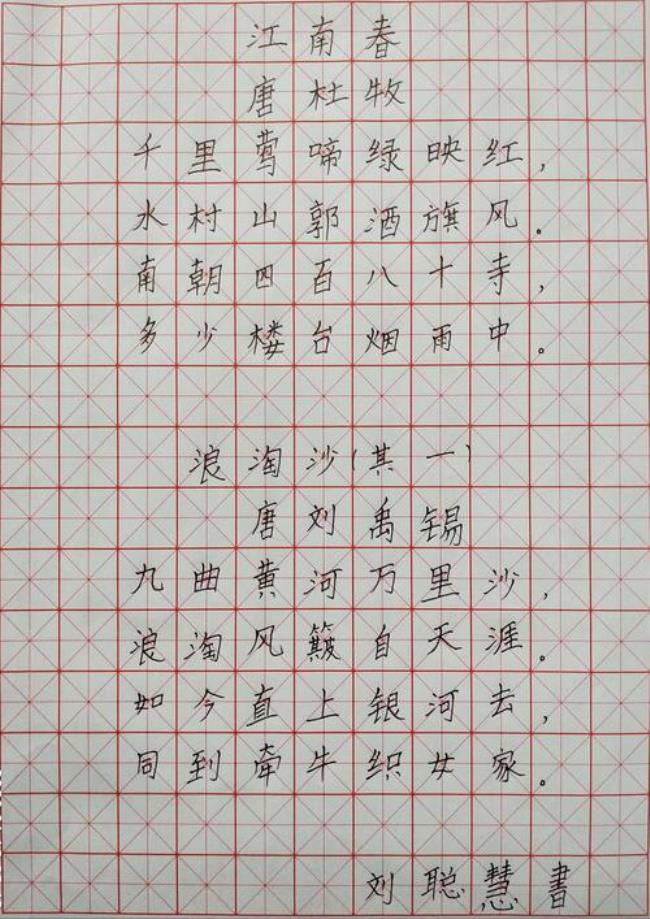 江南春
唐杜牧
千里莺啼绿映红，
水村山郭酒旗风。
南朝四百八十寺，
多少楼台烟雨中。
浪淘沙(其一)
唐刘禹锡
九曲黄河万里沙，
浪淘风簸自天涯。
如今直上银河去，
同到牵牛织女家。
刘聪慧書